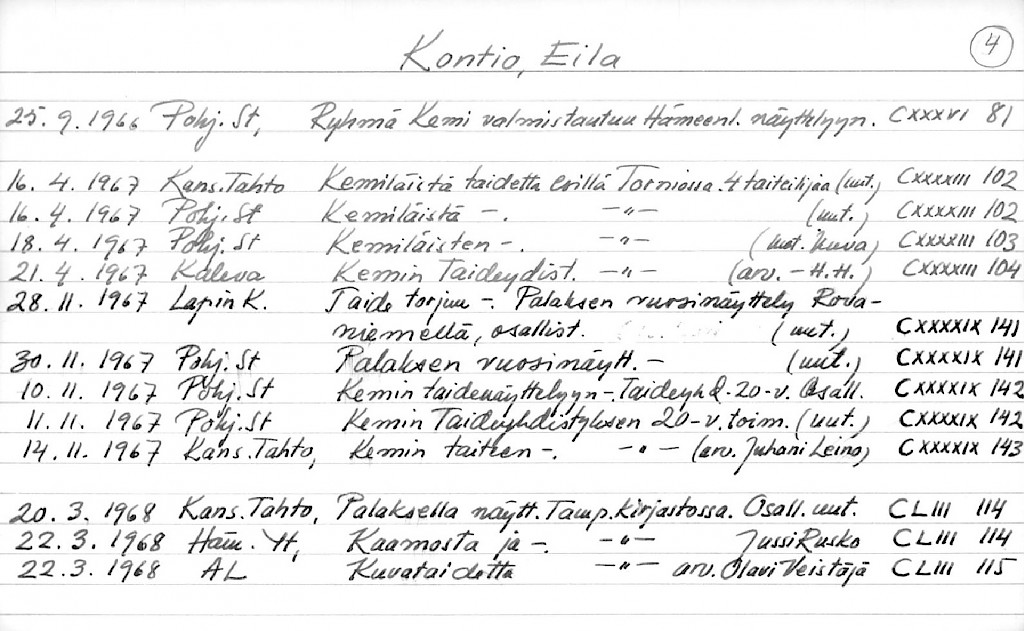 4
Kontio, Eila
25. 9. 1966 Pohj. St, Ryhmä Kemi valmistautuu Hämeenl. näyttelyyn. CXXXVI 81
16. 4. 1967 Kans. Tahto Kemiläistä taidetta esillä Torniossa. 4 taiteilijaa (uut.) CXXXXIII 102
16. 4. 1967 Pohj. St Kemiläistä -. -"- (uut.) CXXXXIII 102
18. 4. 1967 Pohj. St Kemiläisten -. -"- (uut. kuva) CXXXXIII 103
21. 4. 1967 Kaleva Kemin Taideydist. -"- (arv. - H.H.) CXXXXIII 104
28. 11. 1967 Lapin K. Taide torjuu -. Palaksen vuosinäyttely Rova-
niemellä, osallist. (uut.) CXXXXIX 141
30. 11. 1967 Pohj. St Palaksen vuosinäytt. - (uut.) CXXXXIX 141
10. 11. 1967 Pohj. St Kemin taidenäyttelyyn -. Taideyhd. 20-v. Osall. CXXXXIX 142
11. 11. 1967 Pohj. St Kemin Taideyhdistyksen 20-v. toim. (uut.) CXXXXIX 142
14. 11. 1967 Kans. Tahto, Kemin taiteen -. -"- (arv. Juhani Leino) CXXXXIX 143
20. 3. 1968 Kans. Tahto, Palaksella näytt. Tamp. kirjastossa. Osall. uut. CLIII 114
22. 3. 1968 Häm. YH, Kaamosta ja -. -"- Jussi Rusko CLIII 114
22. 3. 1968 AL Kuvataidetta -"- arv. Olavi Veistäjä CLIII 115